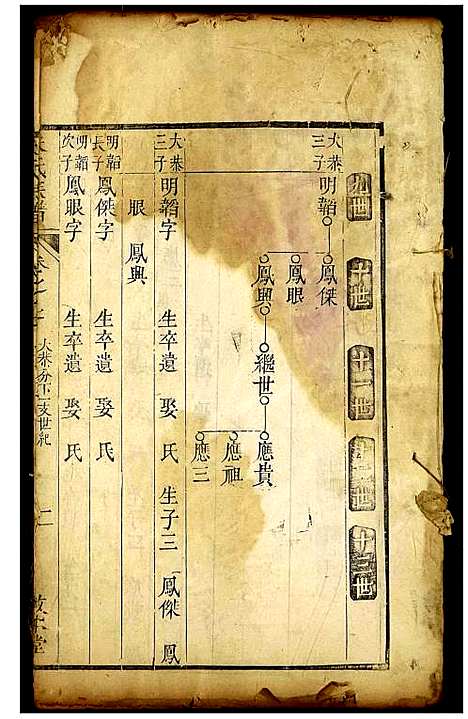 九世
十世
十一世
十二世
十三世
大恭三子
明韜
鳳傑
鳳眼
鳳興
繼世
應貴
應祖
應三
大恭三子 明韜字 生卒遺 娶 氏 生子三 鳳傑 鳳
眼 鳳興
明韜長子 鳳傑字 生卒遺 娶 氏
明韜次子 鳳眼字 生卒遺 娶 氏
氏族譜
卷之
大恭分下一支世紀
二
堂